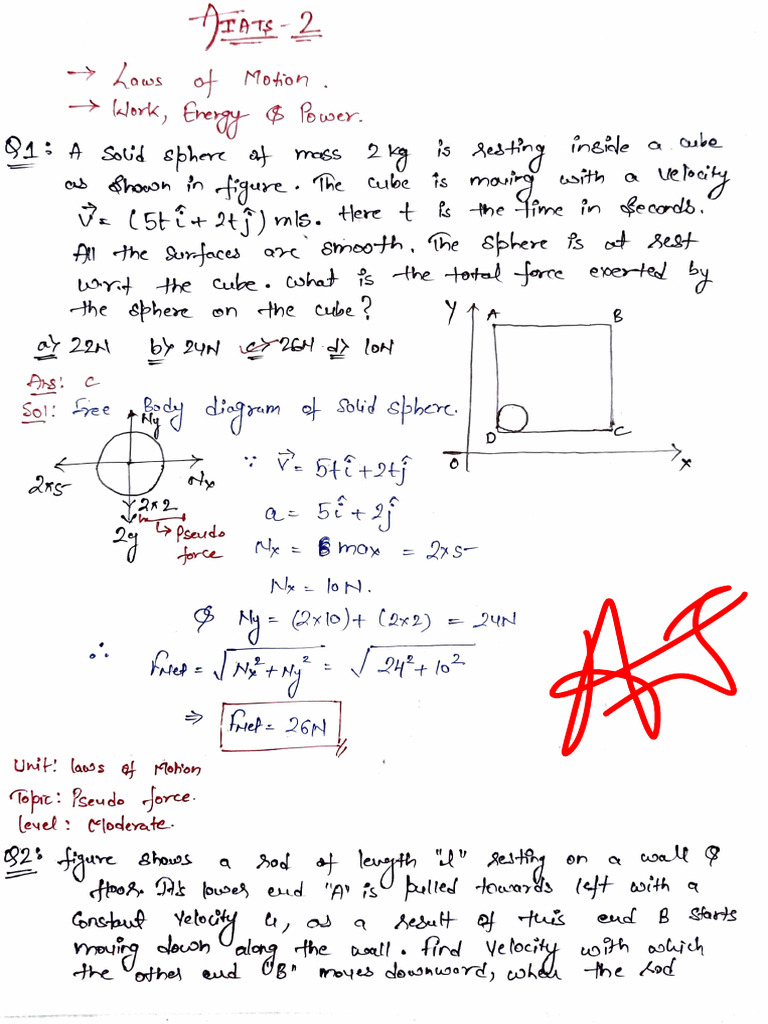 AIATS - 2
→ Laws of Motion.
→ Work, Energy & Power.
Q1: A Solid Sphere of mass 2 kg is resting inside a cube
as shown in figure. The cube is moving with a velocity
V⃗ = (5tî + 2tĵ) m/s. Here t is the time in seconds.
All the surfaces are smooth. The sphere is at rest
w.r.t the cube. What is the total force exerted by
the sphere on the cube?
a> 22N b> 24N c> 26N d> 10N
Y A B
D C
O x
Ans: c
Sol: Free Body diagram of solid sphere.
Ny
2x5 Nx
2x2
2g → Pseudo
force
∵ V⃗ = 5tî + 2tĵ
a = 5î + 2ĵ
Nx = max = 2x5
Nx = 10N.
& Ny = (2x10) + (2x2) = 24N
∴ FNet = √Nx² + Ny² = √24² + 10²
⇒ FNet = 26N
AJ
Unit: Laws of Motion
Topic: Pseudo force.
Level: Moderate.
Q2: Figure shows a rod of length "l" resting on a wall &
floor. It's lower end "A" is pulled towards left with a
Constant velocity u, as a result of this end B starts
moving down along the wall. Find velocity with which
the other end "B" moves downward, when the rod